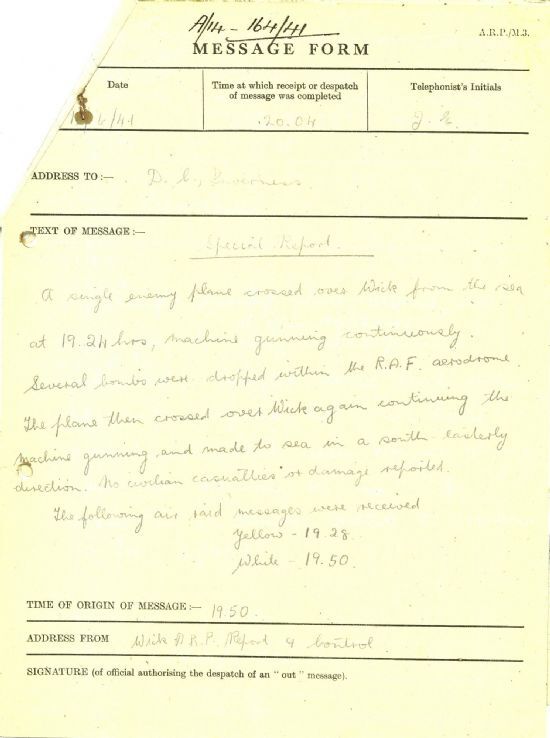 A/14 - 164/41
A.R.P./M.3.
MESSAGE FORM
Date
Time at which receipt or despatch
of message was completed
Telephonist's Initials
/4/41
20.04
J. E.
ADDRESS TO:— D. C., Inverness
TEXT OF MESSAGE:—
Special Report.
A single enemy plane crossed over Wick from the sea
at 19.24 hrs, machine gunning continuously.
Several bombs were dropped within the R.A.F. aerodrome.
The plane then crossed over Wick again continuing the
machine gunning and made to sea in a south easterly
direction. No civilian casualties or damage reported.
The following air raid messages were received
Yellow - 19.28
White - 19.50.
TIME OF ORIGIN OF MESSAGE:— 19.50.
ADDRESS FROM Wick A.R.P. Report & Control
SIGNATURE (of official authorising the despatch of an "out" message).